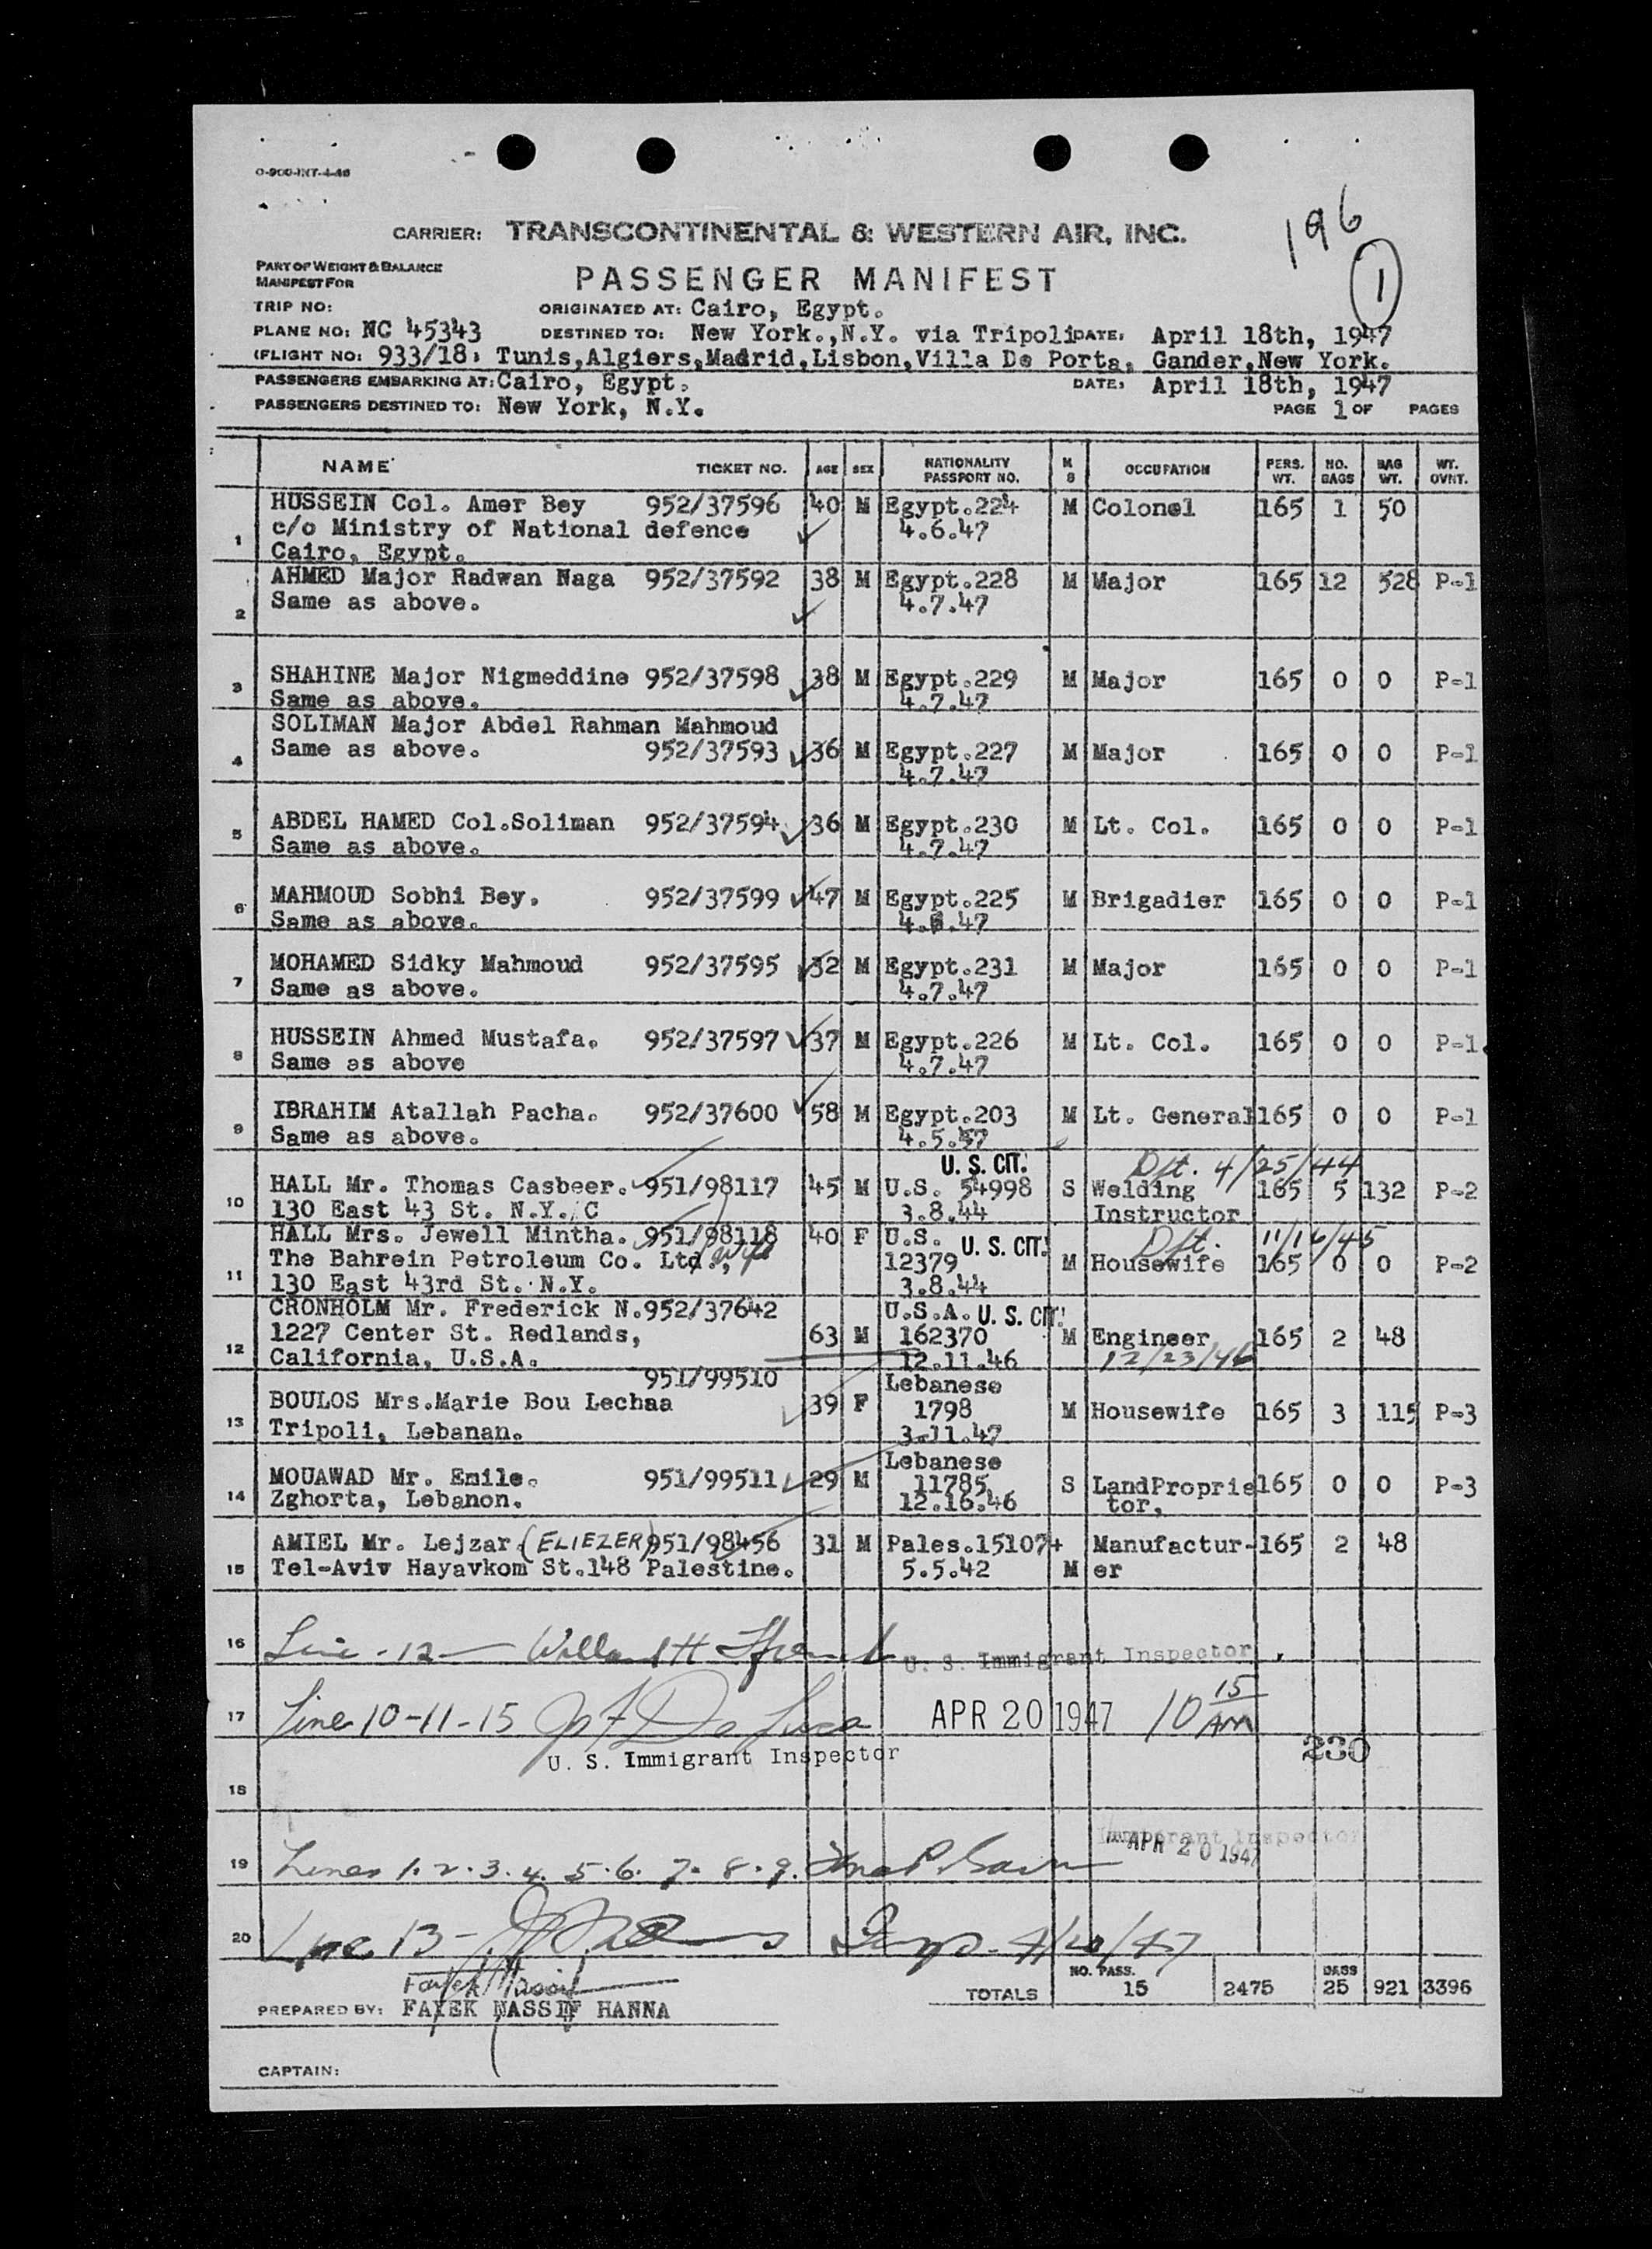 O-900-INT-4-46
196
1
CARRIER: TRANSCONTINENTAL & WESTERN AIR, INC.
PART OF WEIGHT & BALANCE
MANIFEST FOR
PASSENGER MANIFEST
TRIP NO: ORIGINATED AT: Cairo, Egypt.
PLANE NO: NC 45343 DESTINED TO: New York.,N.Y. via Tripoli DATE: April 18th, 1947
(FLIGHT NO: 933/18, Tunis,Algiers,Madrid,Lisbon,Villa De Porta, Gander,New York.
PASSENGERS EMBARKING AT: Cairo, Egypt. DATE: April 18th, 1947
PASSENGERS DESTINED TO: New York, N.Y. PAGE 1 OF PAGES
NAME TICKET NO. AGE SEX NATIONALITY PASSPORT NO. M S OCCUPATION PERS. WT. NO. BAGS BAG WT. WT. OVNT.
HUSSEIN Col. Amer Bey 952/37596 40 M Egypt.224 M Colonel 165 1 50
c/o Ministry of National defence 4.6.47
1 Cairo, Egypt.
AHMED Major Radwan Naga 952/37592 38 M Egypt.228 M Major 165 12 528 P-1
2 Same as above. 4.7.47
3 SHAHINE Major Nigmeddine 952/37598 38 M Egypt.229 M Major 165 0 0 P-1
Same as above. 4.7.47
SOLIMAN Major Abdel Rahman Mahmoud
4 Same as above. 952/37593 36 M Egypt.227 M Major 165 0 0 P-1
4.7.47
5 ABDEL HAMED Col.Soliman 952/37594 36 M Egypt.230 M Lt. Col. 165 0 0 P-1
Same as above. 4.7.47
6 MAHMOUD Sobhi Bey. 952/37599 47 M Egypt.225 M Brigadier 165 0 0 P-1
Same as above. 4.6.47
7 MOHAMED Sidky Mahmoud 952/37595 32 M Egypt.231 M Major 165 0 0 P-1
Same as above. 4.7.47
8 HUSSEIN Ahmed Mustafa. 952/37597 37 M Egypt.226 M Lt. Col. 165 0 0 P-1
Same as above 4.7.47
9 IBRAHIM Atallah Pacha. 952/37600 58 M Egypt.203 M Lt. General 165 0 0 P-1
Same as above. 4.5.47
U. S. CIT. Dft. 4/25/44
10 HALL Mr. Thomas Casbeer. 951/98117 45 M U.S. 54998 S Welding 165 5 132 P-2
130 East 43 St. N.Y. C 3.8.44 Instructor
HALL Mrs. Jewell Mintha. 951/98118 40 F U.S. U. S. CIT. Dft. 11/16/45
The Bahrein Petroleum Co. Ltd., wife 12379 M Housewife 165 0 0 P-2
11 130 East 43rd St. N.Y. 3.8.44
CRONHOLM Mr. Frederick N.952/37642 U.S.A. U. S. CIT.
1227 Center St. Redlands, 63 M 162370 M Engineer 165 2 48
12 California, U.S.A. 12.11.46 12/23/46
951/99510 Lebanese
13 BOULOS Mrs.Marie Bou Lechaa 39 F 1798 M Housewife 165 3 115 P-3
Tripoli, Lebanan. 3.11.47
Lebanese
14 MOUAWAD Mr. Emile. 951/99511 29 M 11785 S LandProprie 165 0 0 P-3
Zghorta, Lebanon. 12.16.46 tor,
AMIEL Mr. Lejzar (ELIEZER) 951/98456 31 M Pales.15107+ Manufactur- 165 2 48
15 Tel-Aviv Hayavkom St.148 Palestine. 5.5.42 M er
16 Line - 12 — U. S. Immigrant Inspector
17 Line 10-11-15 De Luca APR 20 1947 10 15 AM
U. S. Immigrant Inspector 230
18
Immigrant Inspector
19 Lines 1. 2. 3. 4. 5. 6. 7. 8. 9. APR 20 1947
20 Line 13 - Insp. 4/20/47
TOTALS NO. PASS. 15 2475 BAGS 25 921 3396
PREPARED BY: FAYEK NASSIF HANNA
CAPTAIN: